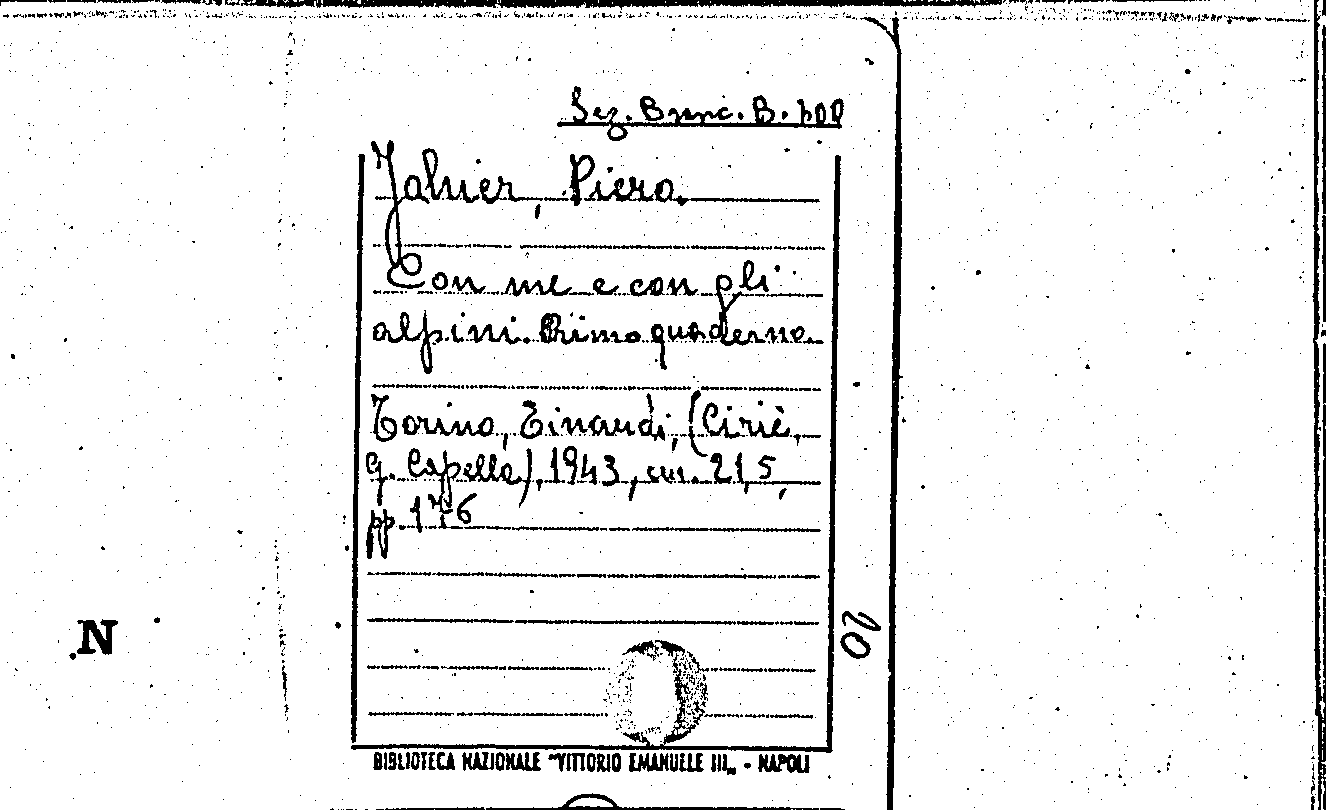 Sez. Branc. B. 100
Jahier, Piero.
Con me e con gli
alpini. Primo quaderno.
Torino, Einaudi, (Ciriè,
G. Capella), 1943, cm. 21,5,
pp. 176
20
N
BIBLIOTECA NAZIONALE "VITTORIO EMANUELE III„ - NAPOLI